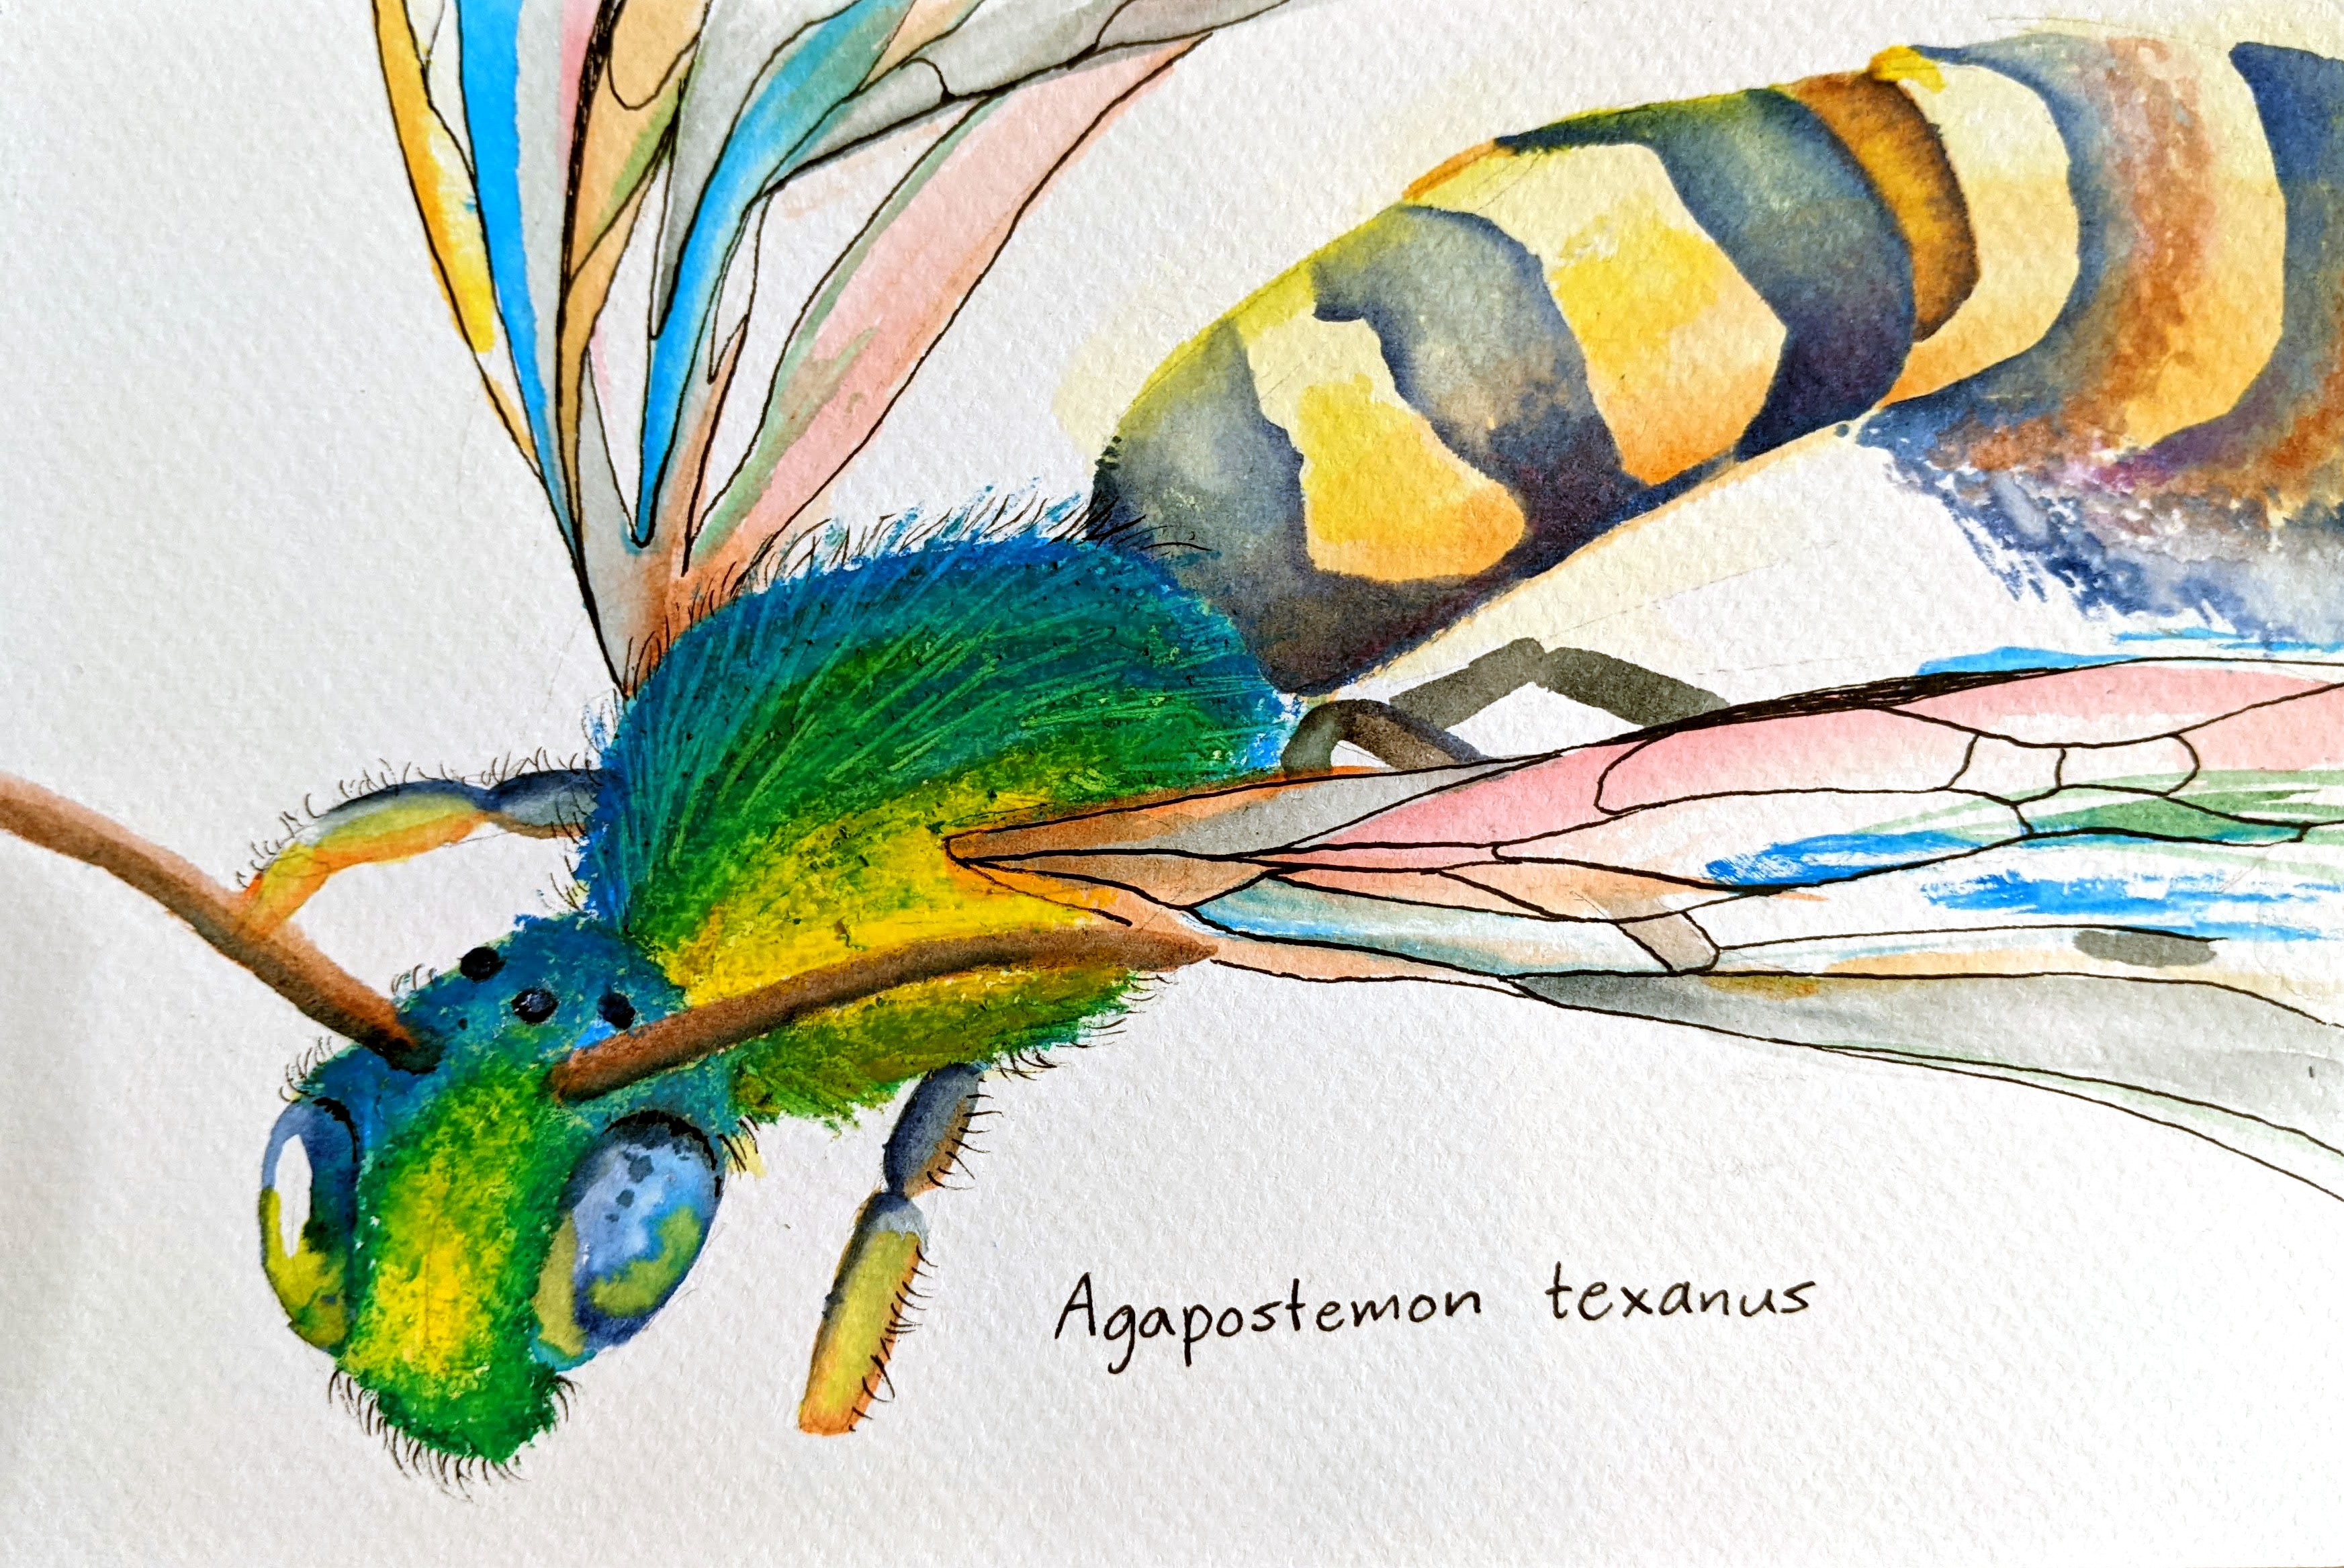 Agapostemon texanus